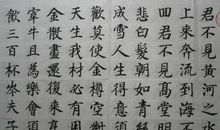 君不見黃河之水
上來奔流到海不
回君不見高堂明
悲白髮朝如青絲
成雪人生得意須
歡莫使金樽空對
天生我材必有用
金散盡還復來
宰牛且為樂會須
飲三百杯岑夫子